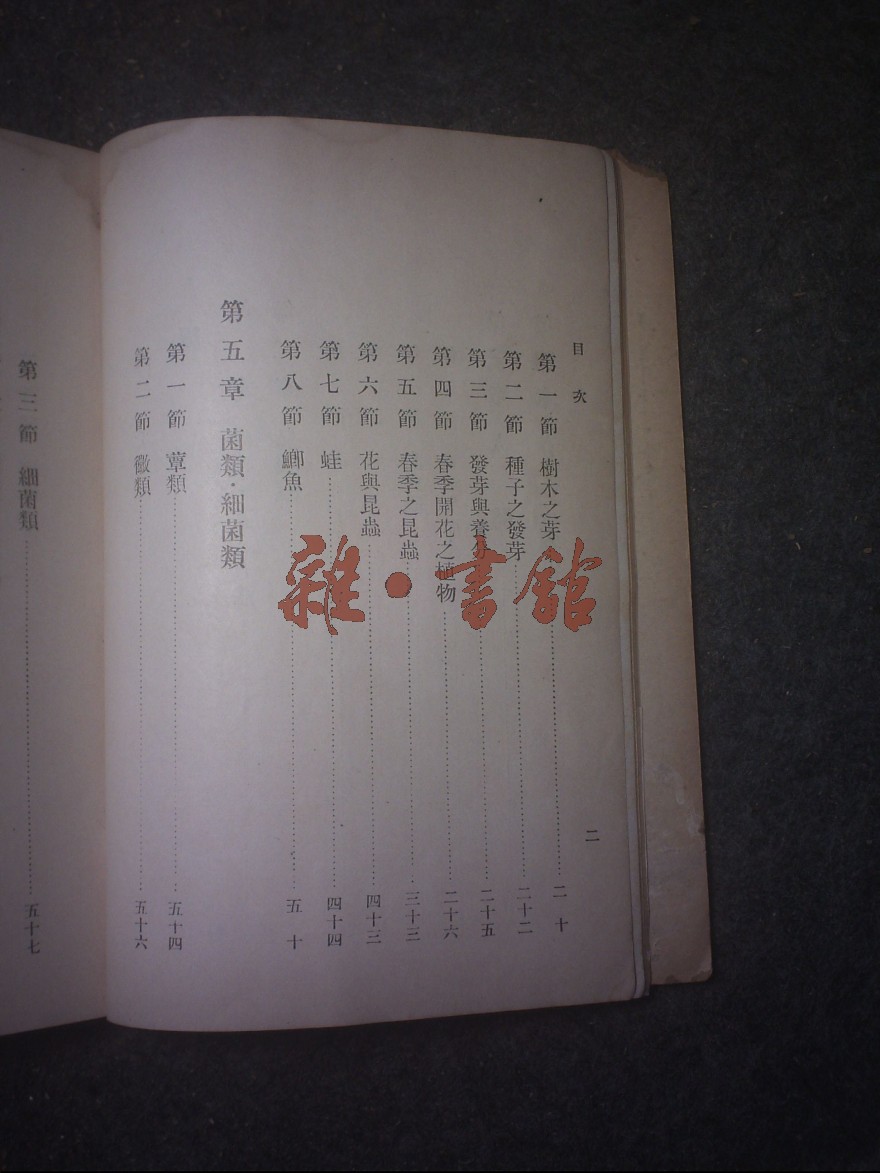 目次
第一節 樹木之芽 二十
第二節 種子之發芽 二十二
第三節 發芽與養分 二十五
第四節 春季開花之植物 二十六
第五節 春季之昆蟲 三十三
第六節 花與昆蟲 四十三
第七節 蛙 四十四
第八節 鯽魚 五十
第五章 菌類・細菌類
第一節 蕈類 五十四
第二節 黴類 五十六
二
第三節 細菌類 五十七
雜・書館